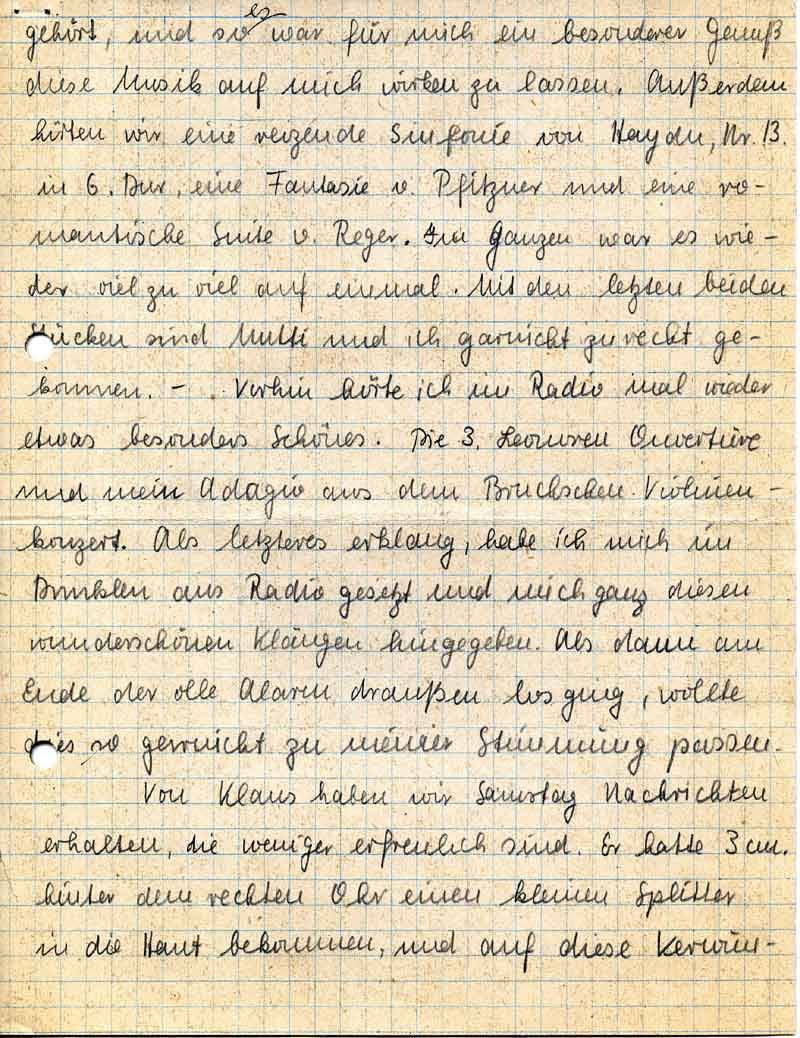 gehört, und so es war für mich ein besonderer Genuß
diese Musik auf mich wirken zu lassen. Außerdem
hörten wir eine reizende Sinfonie von Haydn, Nr. 13.
in G. Dur, eine Fantasie v. Pfitzner und eine ro-
mantische Suite v. Reger. Im Ganzen war es wie-
der viel zu viel auf einmal. Mit den letzten beiden
Stücken sind Mutti und ich garnicht zurecht ge-
kommen. - Vorhin hörte ich im Radio mal wieder
etwas besonders Schönes. Die 3. Leonoren Ouvertüre
und mein Adagio aus dem Bruchschen Violinen-
konzert. Als letzteres erklang, habe ich mich im
Dunklen ans Radio gesetzt und mich ganz diesen
wunderschönen Klängen hingegeben. Als dann am
Ende der olle Alarm draußen los ging, wollte
dies so garnicht zu meiner Stimmung passen.
Von Klaus haben wir Samstag Nachrichten
erhalten, die weniger erfreulich sind. Er hatte 3 cm.
hinter dem rechten Ohr einen kleinen Splitter
in die Haut bekommen, und auf diese Verwun-